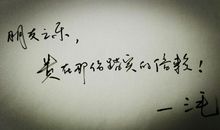 朋友之乐，
贵在那份踏实的信赖！
一三毛